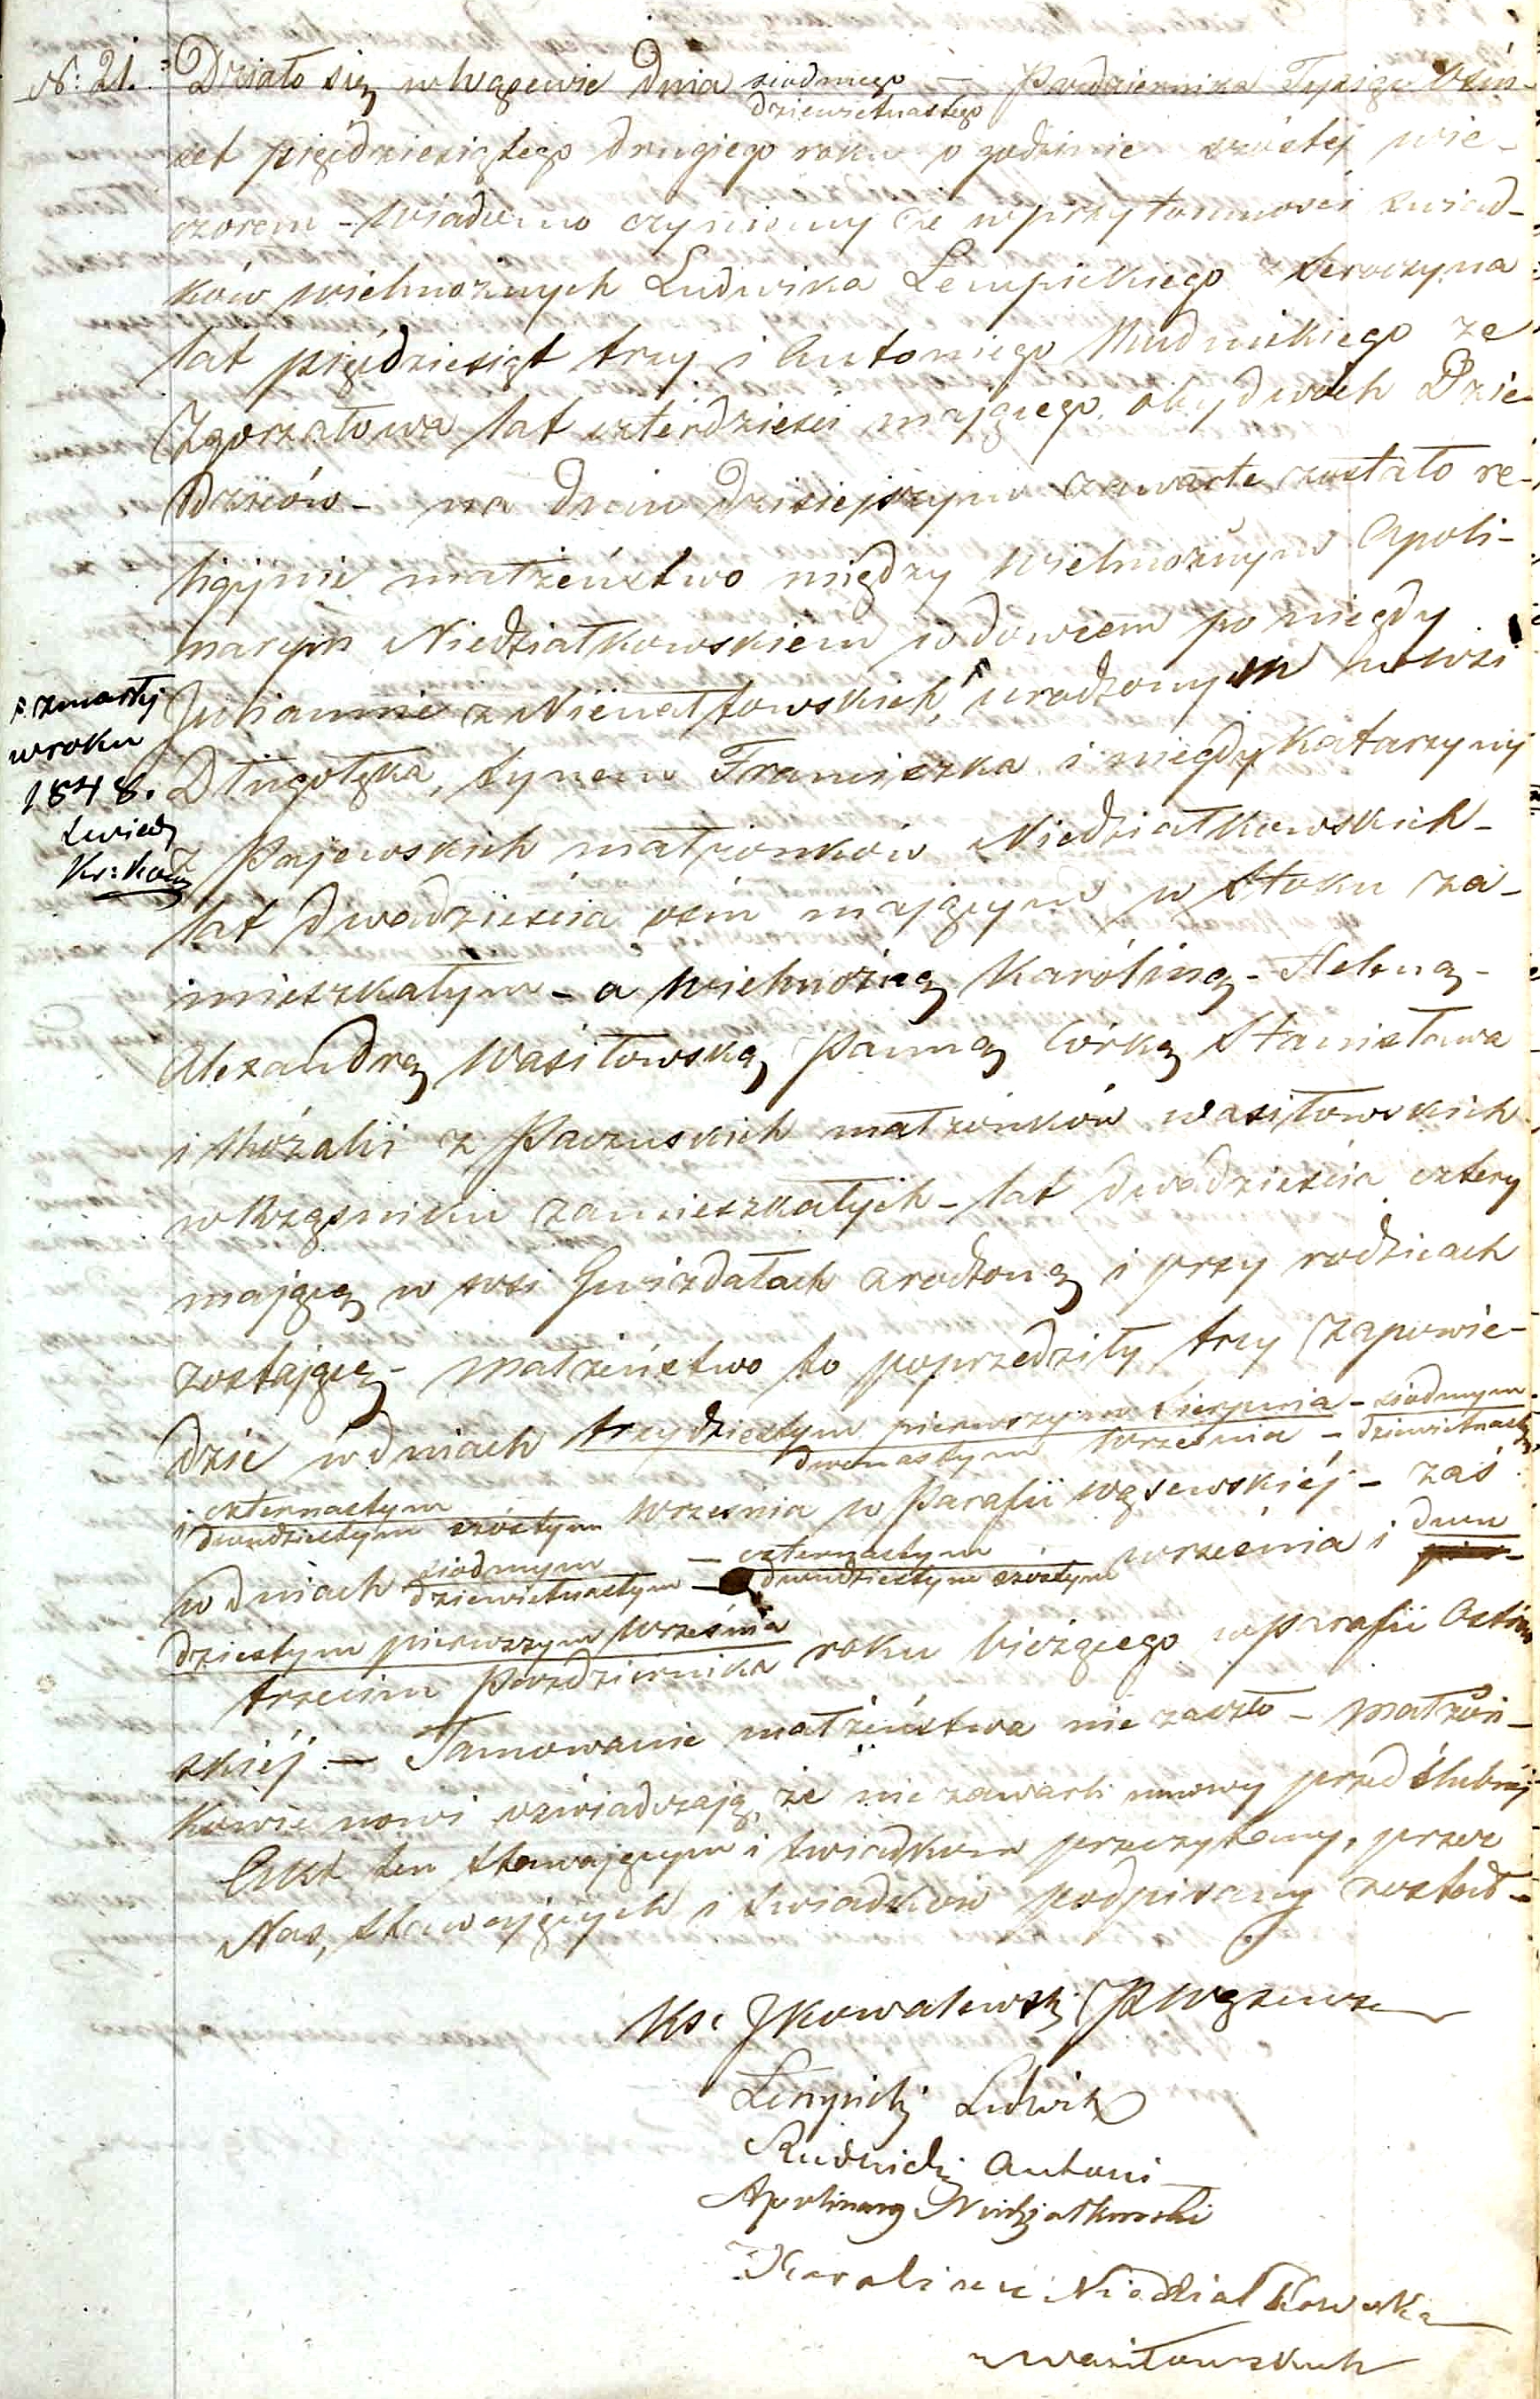 N: 21. Działo się w Wąsewie dnia siodmego/dziewietnastego — Pazdziernika Tysiąc Osm-
set pięćdziesiątego drugiego roku o godzinie szóstej wie-
czorem - Wiadomo czyniemy że w przytomności świad-
ków wielmożnych Ludwika Lempickiego z Seroczyna
lat pięćdziesiąt trzy i Antoniego Rudnickiego ze
Zgorzałowa lat czterdzieści mającego, obydwóch Dzie-
dziców - na dniu dzisiejszym zawarte zostało re-
ligijnie małżeństwo między Wielmożnym Apoli-
narym Niedziałkowskiem wdowcem po niegdy
Juliannie z Nienałtowskich, urodzonym we wsi
Długołęka, synem Franciszka i niegdy Katarzyny
z Pajewskich małżonków Niedziałkowskich -
lat dwadzieścia osm mającym w Stoku za-
mieszkałym - a Wielmożną Karóliną - Heleną -
Alexandrą Wasiłowską Panną córką Stanisława
i Rózalii z Paczuskich małżonków Wasiłowskich
w Rząsniku zamieszkałych - lat dwadzieścia cztery
mającą w wsi Gwizdałach zrodzoną i przy rodzicach
zostającą - Małżeństwo to poprzedziły trzy zapowie-
dzie w dniach trzydziestym pierwszym Sierpnia/dwunastym Września - siodmym/dziewietnastym
i czternastym/dwudziestym szóstym Wrzesnia w Parafii Wąsewskiéj - zaś
w dniach siodmym/dziewietnastym - czternastym/dwudziestym szóstym września i dwu
dziestym pierwszym Września/trzecim Pazdziernika roku bieżącego w Parafii Ostrow
skiéj - Tamowanie małżeństwa nie zaszło - Małżon-
kowie nowi oświadczają, że nie zawarli umowy przedślubnéj
Akt ten stawającym i świadkom przeczytany, przez
Nas, stawających i świadków podpisany został -
† zmarłej
w roku
1848.
Ks: Kow
Ks: J Kowalewski P Wąsewa
Lempicki Ludwik
Rudnicki Antoni
Apolinary Niedziałkowski
Karolina Niedziałkowska
z Wasiłowskich